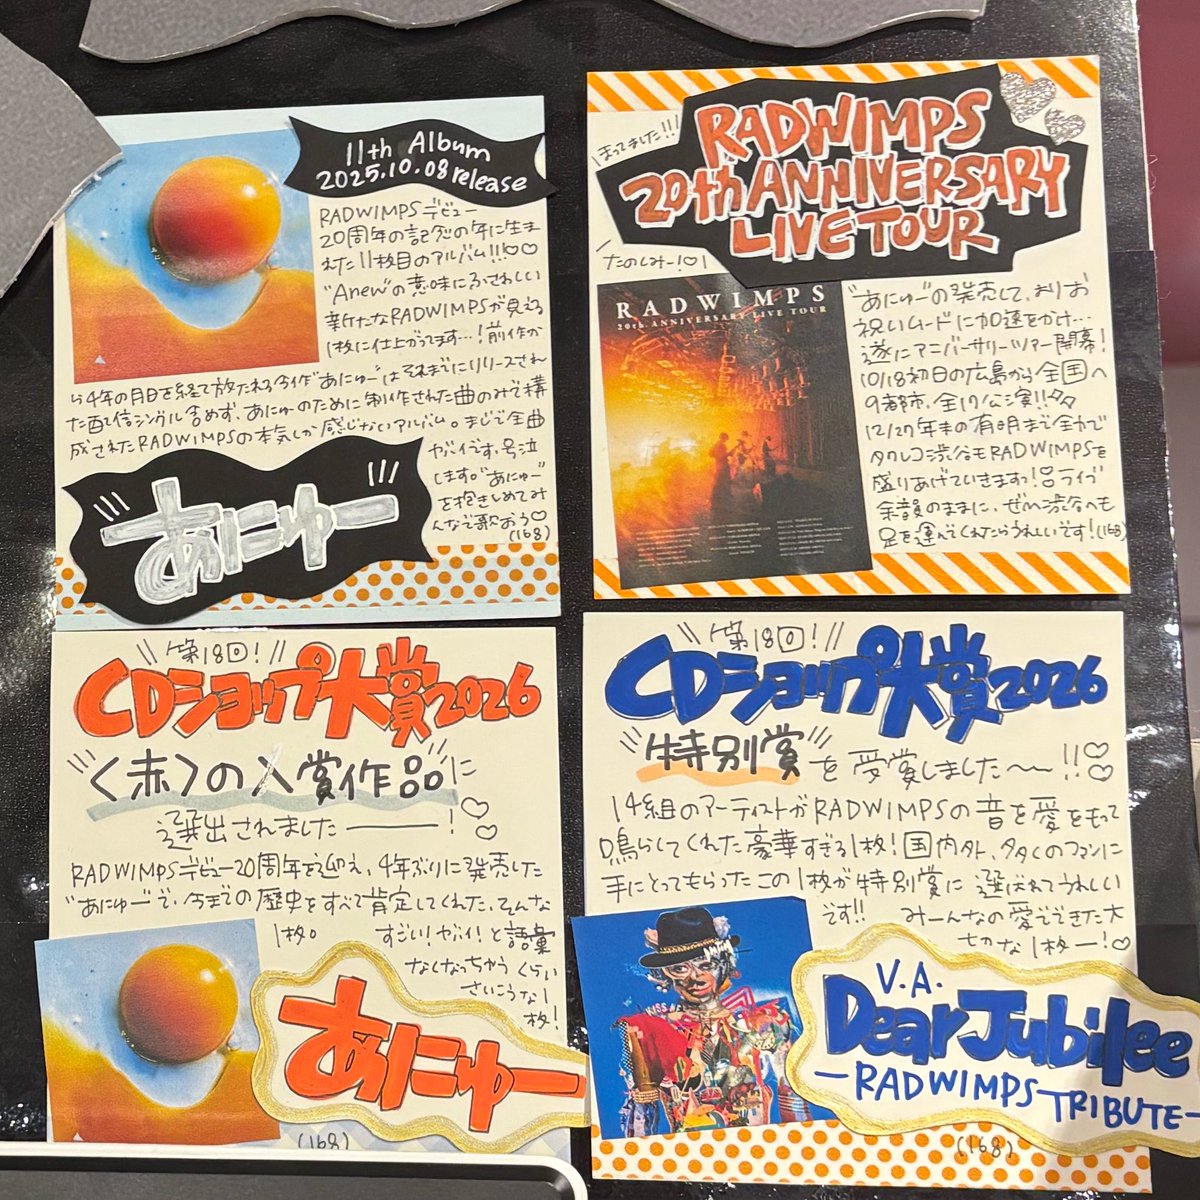 11th Album
2025.10.08 release
RADWIMPSデビュー
20周年の記念の年に生ま
れた11枚目のアルバム!!!♡♡
"Anew"の意味にふさわしい
新たなRADWIMPSが見える
1枚に仕上がってます…!前作か
ら4年の月日を経て放たれる今作"あにゅー"はそれまでにリリースされ
た配信シングル含めず、あにゅーのために制作された曲のみで構
成されたRADWIMPSの本気しか感じないアルバム。まじで全曲
ヤバイです。号泣
します。"あにゅー"
を抱きしめてみ
んなで歌おう♡
(168)
あにゅー
まってました!!!
RADWIMPS
20th ANNIVERSARY
LIVE TOUR
たのしみー!♡
RADWIMPS
20th ANNIVERSARY LIVE TOUR
"あにゅー"の発売して、よりお
祝いムードに加速をかけ…
遂にアニバーサリーツアー開幕!
10/18初日の広島から全国へ
9都市、全17公演!!
12/27年末の有明まで全力で
タワレコ渋谷もRADWIMPSを
盛りあげていきますっ!ライブ
余韻のままに、ぜひ渋谷へも
足を運んでくれたらうれしいです!(168)
第18回!
CDショップ大賞2026
〈赤〉の入賞作品に
選出されました――!♡♡
RADWIMPSデビュー20周年を迎え、4年ぶりに発売した
"あにゅー"で、今までの歴史をすべて肯定してくれた、そんな
1枚。
すごい!ヤバイ!と語彙
なくなっちゃうくらい
さいこうな1
枚!
あにゅー
(168)
第18回!
CDショップ大賞2026
"特別賞"を受賞しました〜!!♡♡
14組のアーティストがRADWIMPSの音を愛をもって
鳴らしてくれた豪華すぎる1枚!国内外、多くのファンに
手にとってもらったこの1枚が特別賞に選ばれてうれしい
です!! みーんなの愛でできた大
せつな1枚ー!♡
V.A.
Dear Jubilee
-RADWIMPS TRIBUTE-
(168)